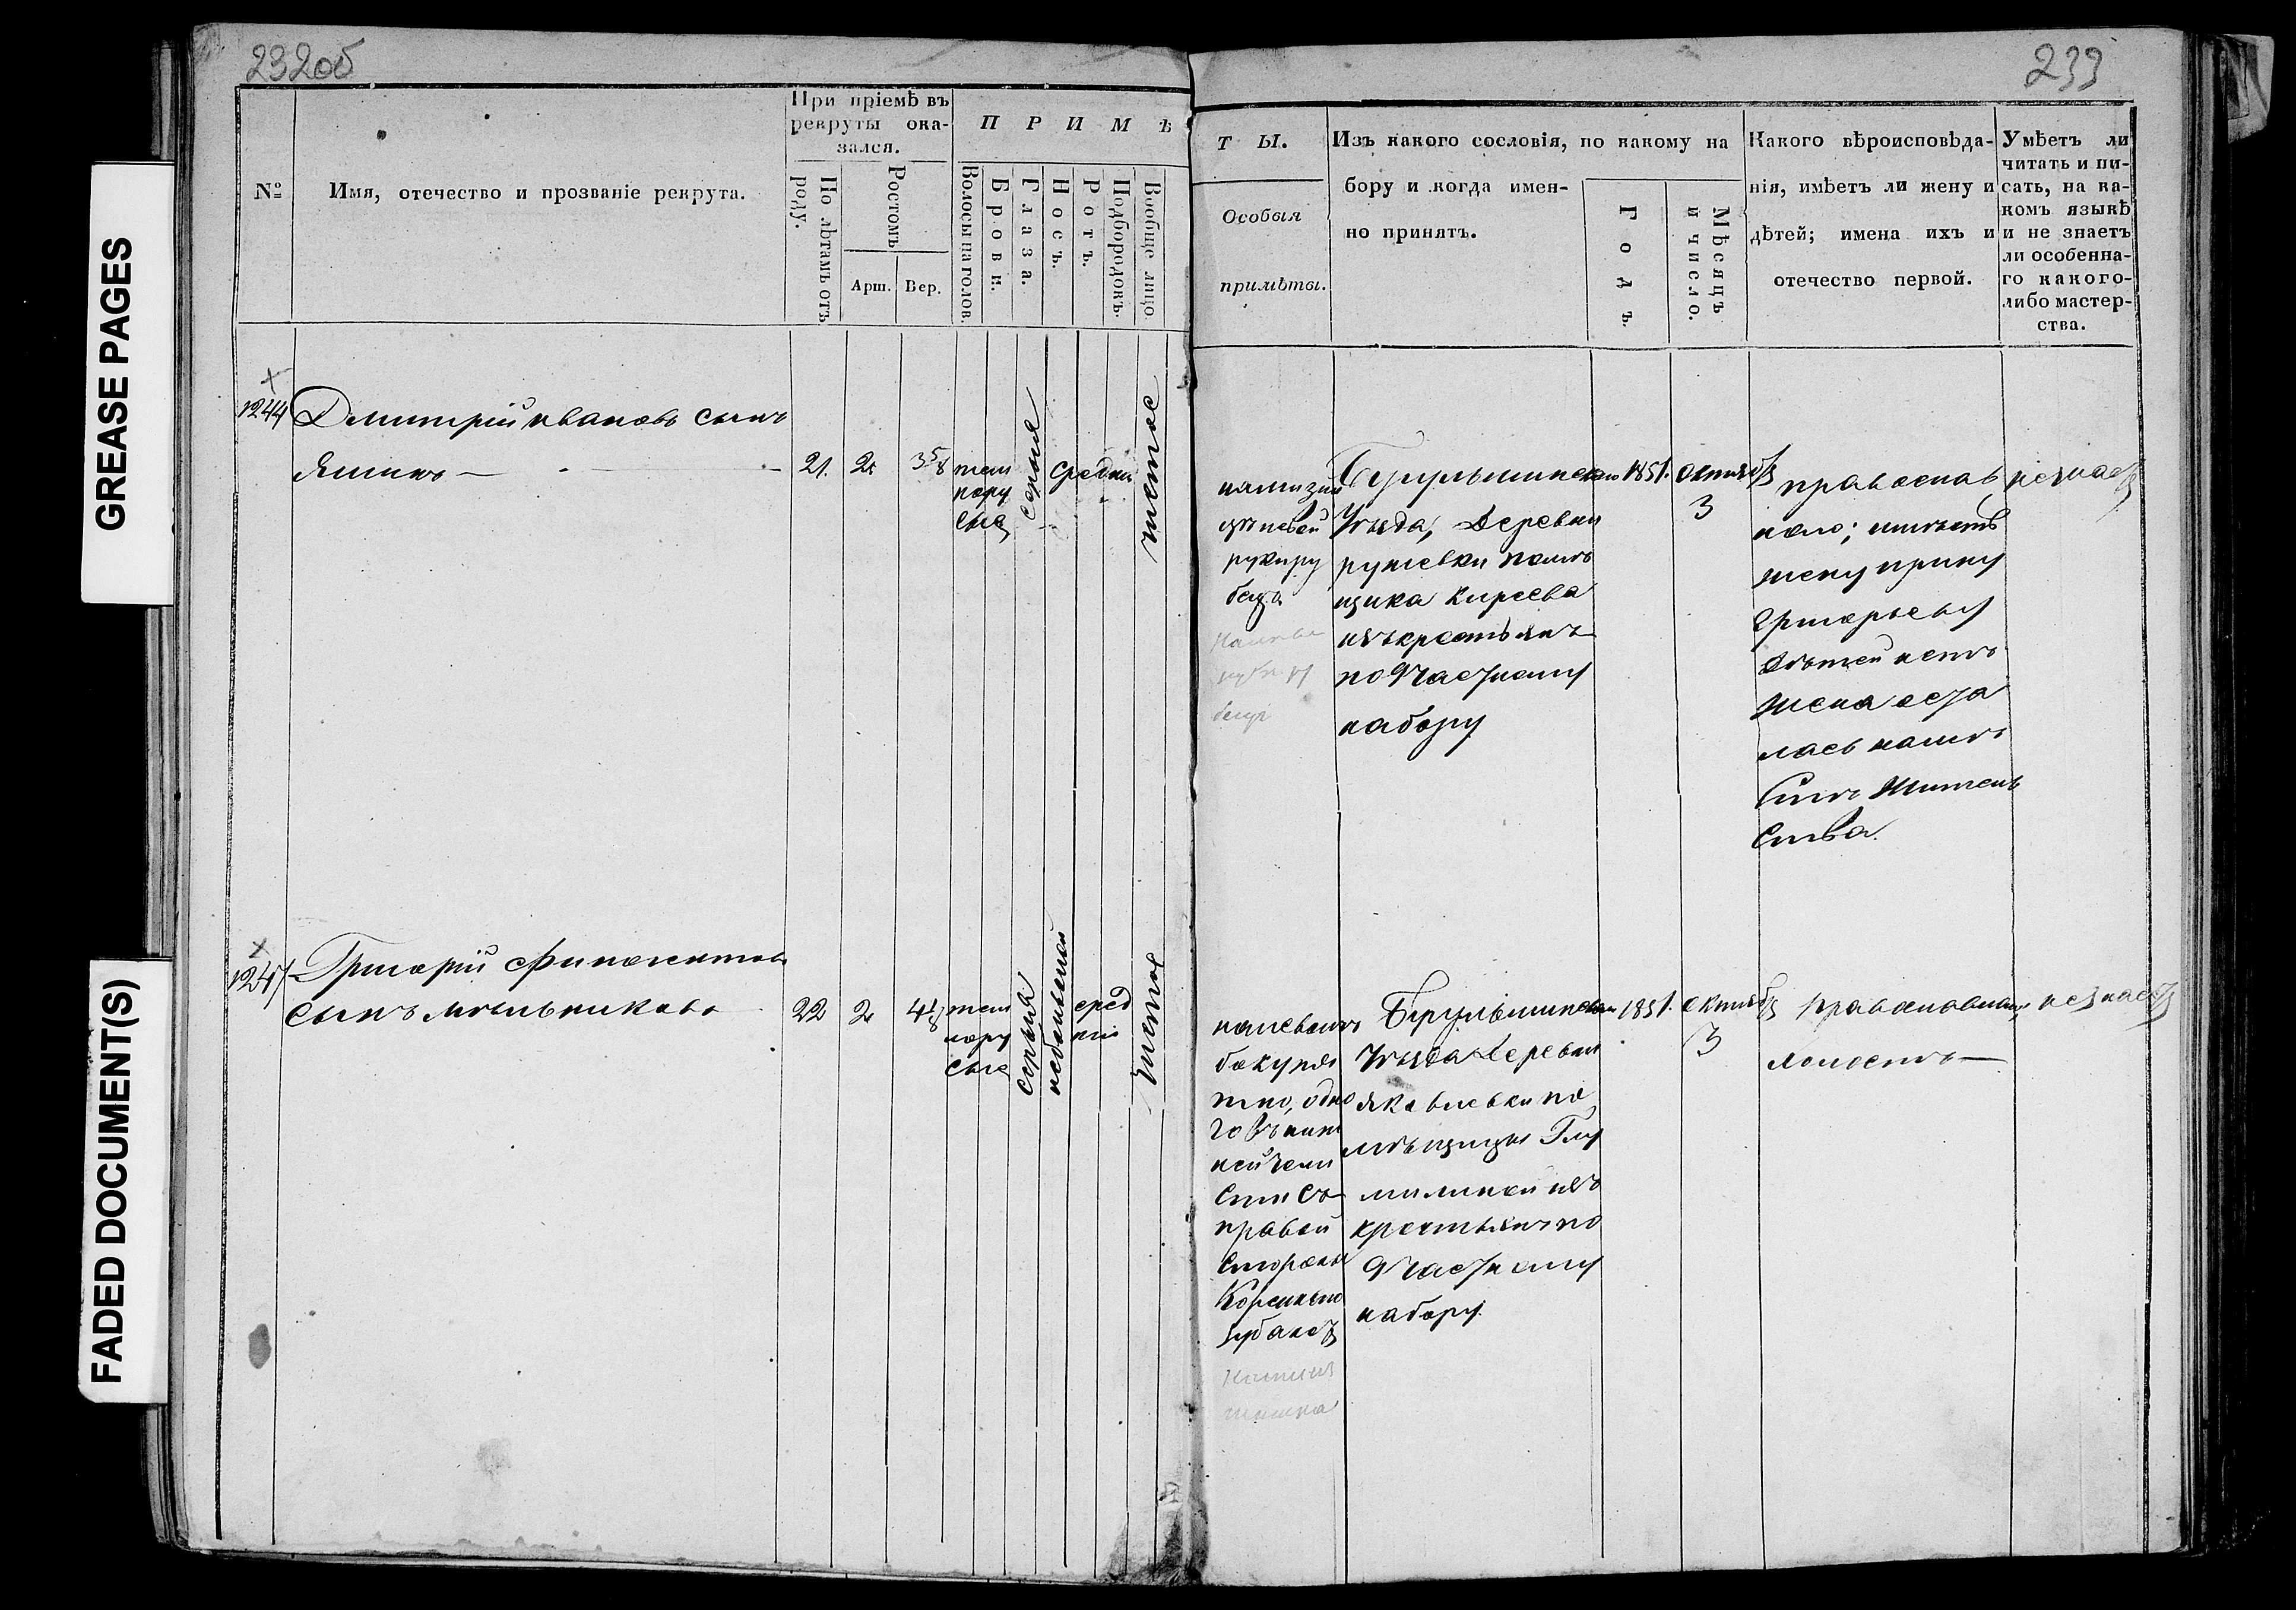 GREASE PAGES
FADED DOCUMENT(S)
232об
233
№
Имя, отечество и прозваніе рекрута.
При пріемѣ въ
рекруты ока-
зался.
По лѣтамъ отъ
роду.
Ростомъ
Арш.
Вер.
ПРИМѢ
Волосы на голов.
Брови.
Глаза.
Носъ.
Ротъ.
Подбородокъ.
Вообще лицо
ТЫ.
Особыя
примѣты.
Изъ какого сословія, по какому на
бору и когда имен-
но принятъ.
Годъ.
Мѣсяцъ
и число.
Какого вѣроисповѣда-
нія, имѣетъ ли жену и
дѣтей; имена ихъ и
отечество первой.
Умѣетъ ли
читать и пи-
сать, на ка-
комъ языкѣ
и не знаетъ
ли особенна-
го какого-
либо мастер-
ства.
1244
Дмитрій Ивановъ сынъ
Яшинъ
21.
2
3 5/8
темно
русые
серыя
средни
чистое
руки ру
бецъ
Бугульминскаго
Уѣзда, Деревни
помѣ
щика Киреева
изъ крестьянъ
по 9 частному
набору
1851.
октября
3
православ
наго; имѣетъ
жену Ирину
Григорьеву
дѣтей нетъ
жена оста
лась на мѣ
стѣ житель
ства.
незнаетъ
1247
Григорій
сынъ Мѣльниковъ
22
2
4 1/8
темно
русые
серыя
небольшой
сред
ніе
чистое
на левомъ
боку пя
тно, одно
го въ ниж
ней челю
сти съ
правой
стороны
Кореннаго
зуба нетъ
Бугульминскаго
Уѣзда Деревни
Яковлевки по
мѣщицы
изъ
крестьянъ по
9 частному
набору.
1851.
октября
3
Православнаго
холостъ
незнаетъ